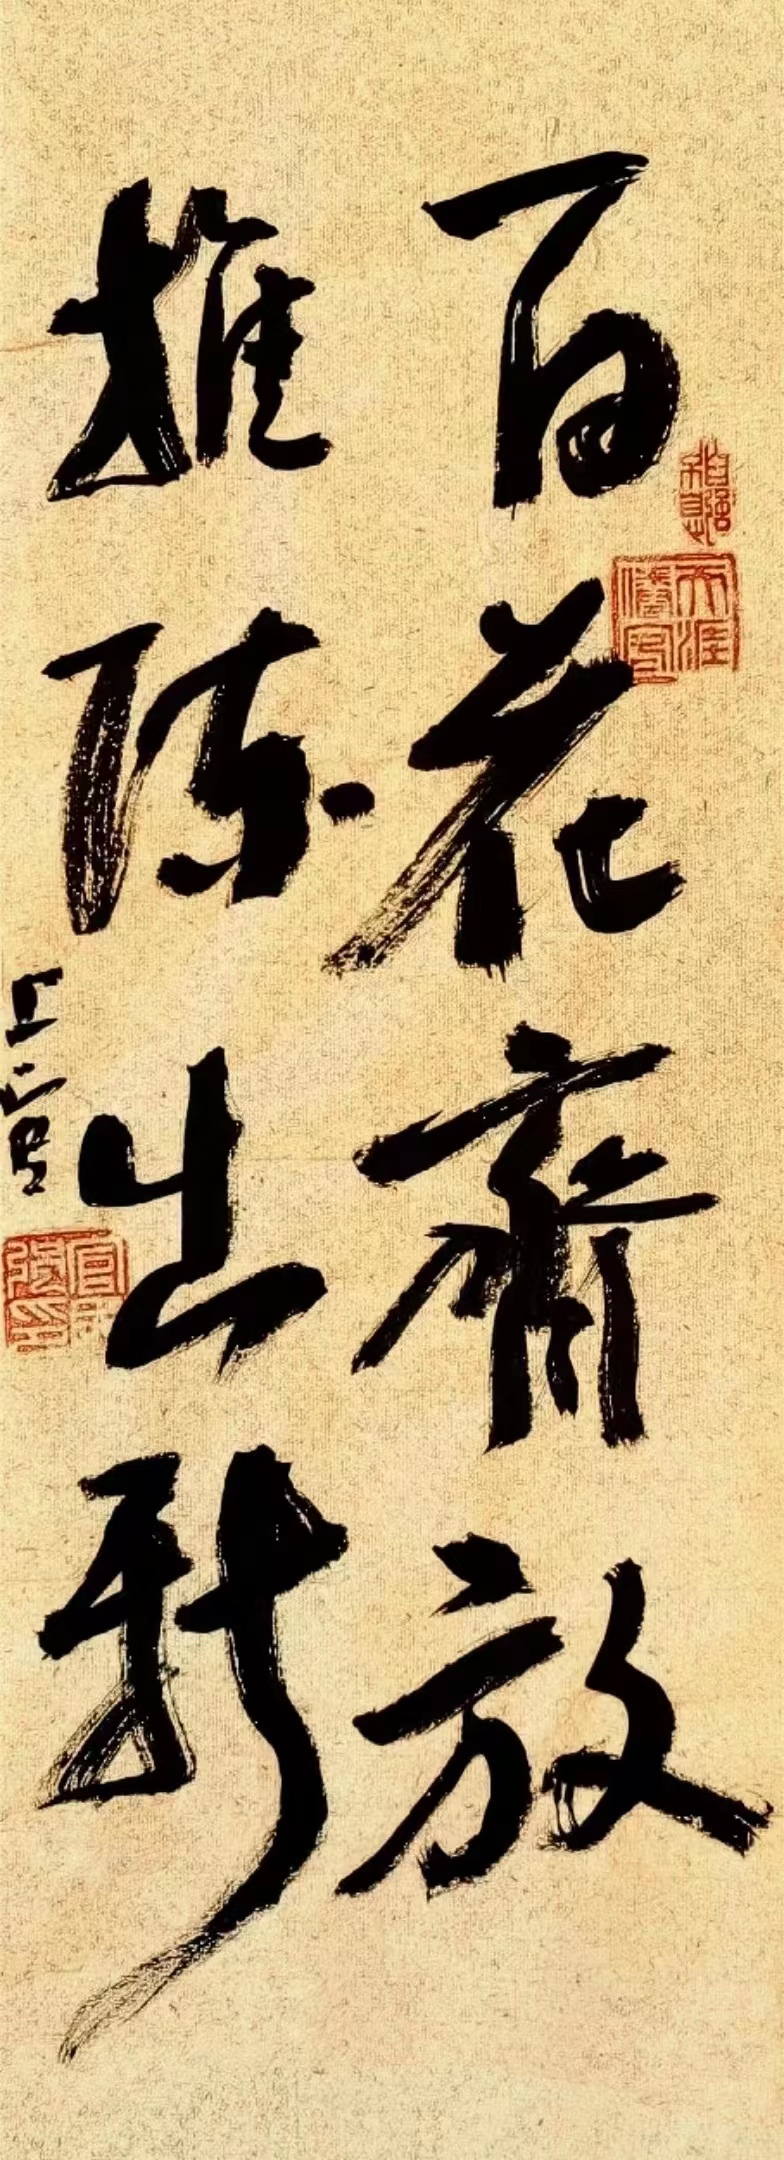 百花齊放
推陈出新